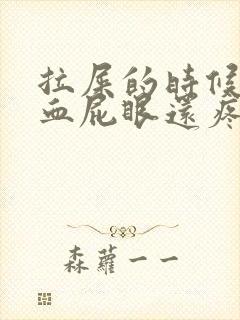 拉屎的時候
血屁眼還疼
森蘿一一